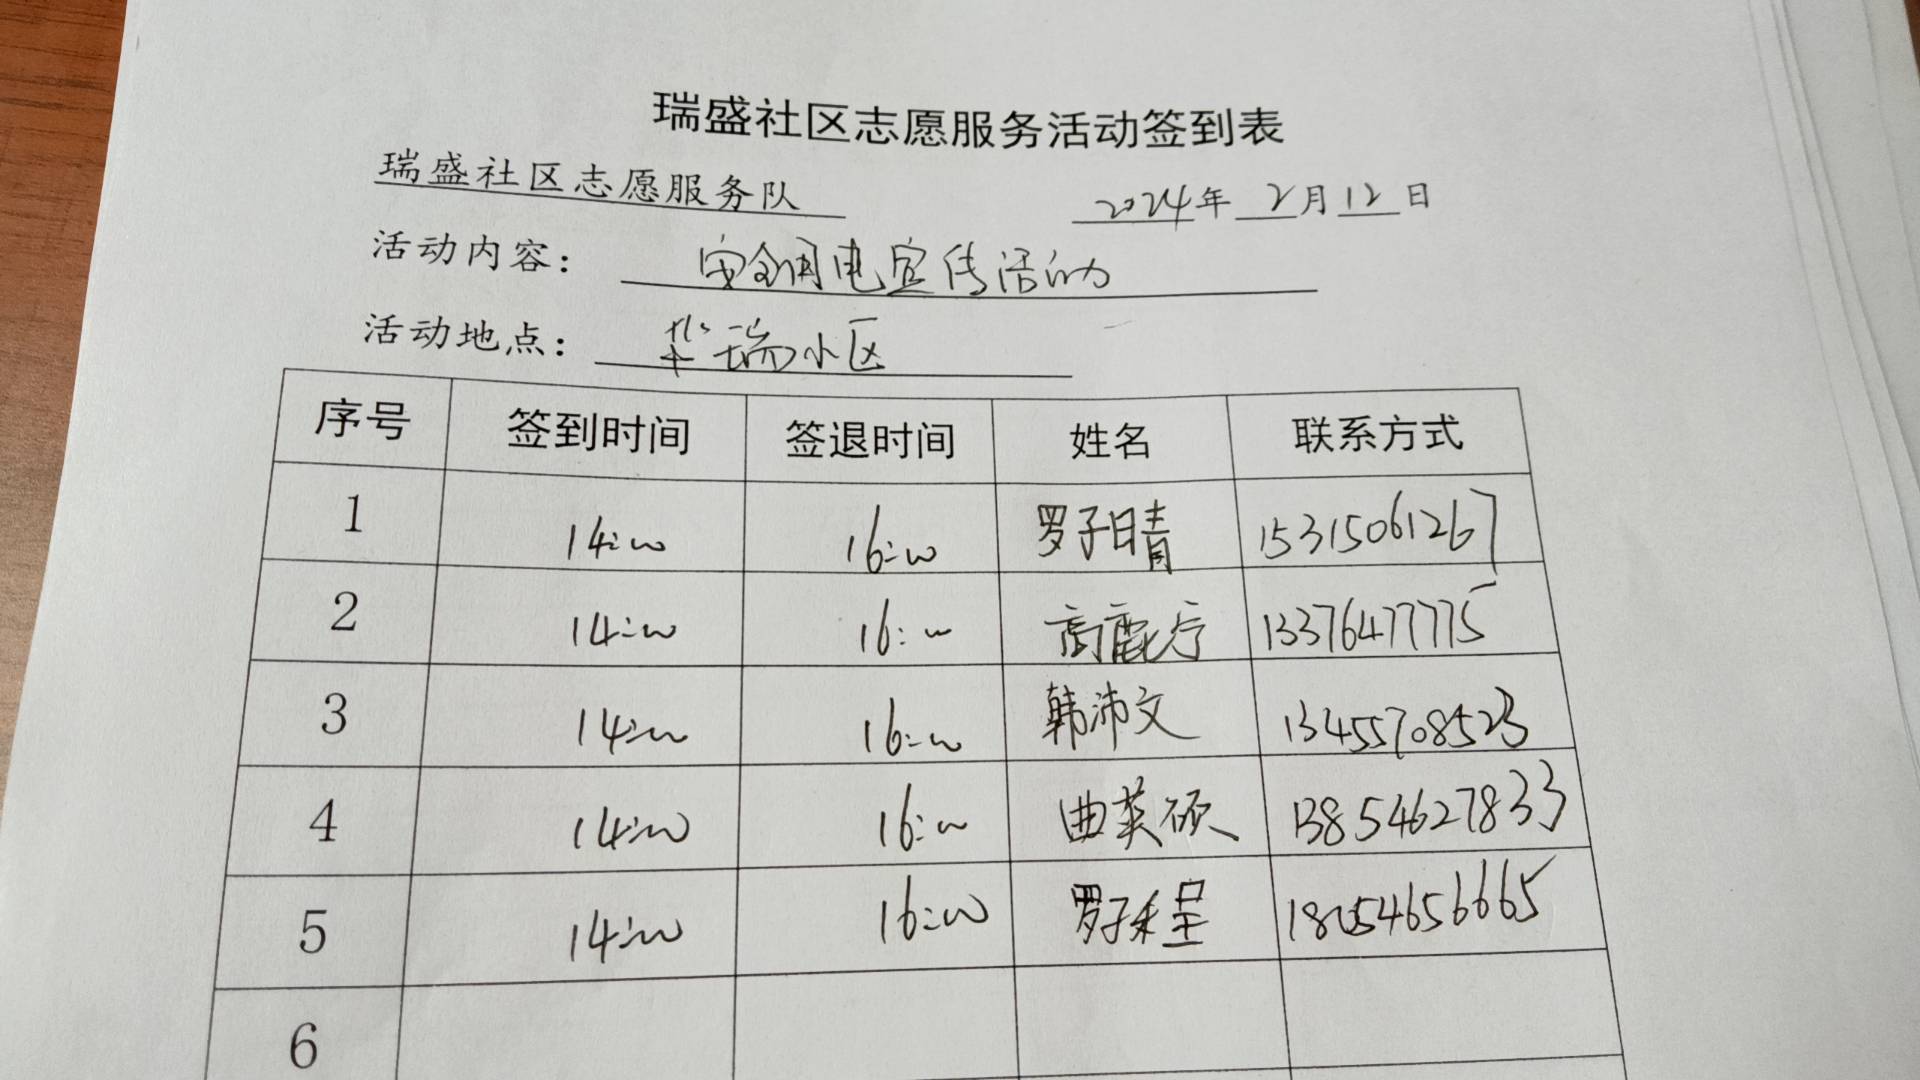 瑞盛社区志愿服务活动签到表
瑞盛社区志愿服务队 2024年 2月12日
活动内容： 安全用电宣传活动
活动地点： 华瑞小区
序号 签到时间 签退时间 姓名 联系方式
1 14:00 16:00 罗子晴 15315061267
2 14:00 16:00 高鹿行 13376477775
3 14:00 16:00 韩沛文 13455708523
4 14:00 16:00 曲英硕 13854627833
5 14:00 16:00 罗子程 18054656665
6